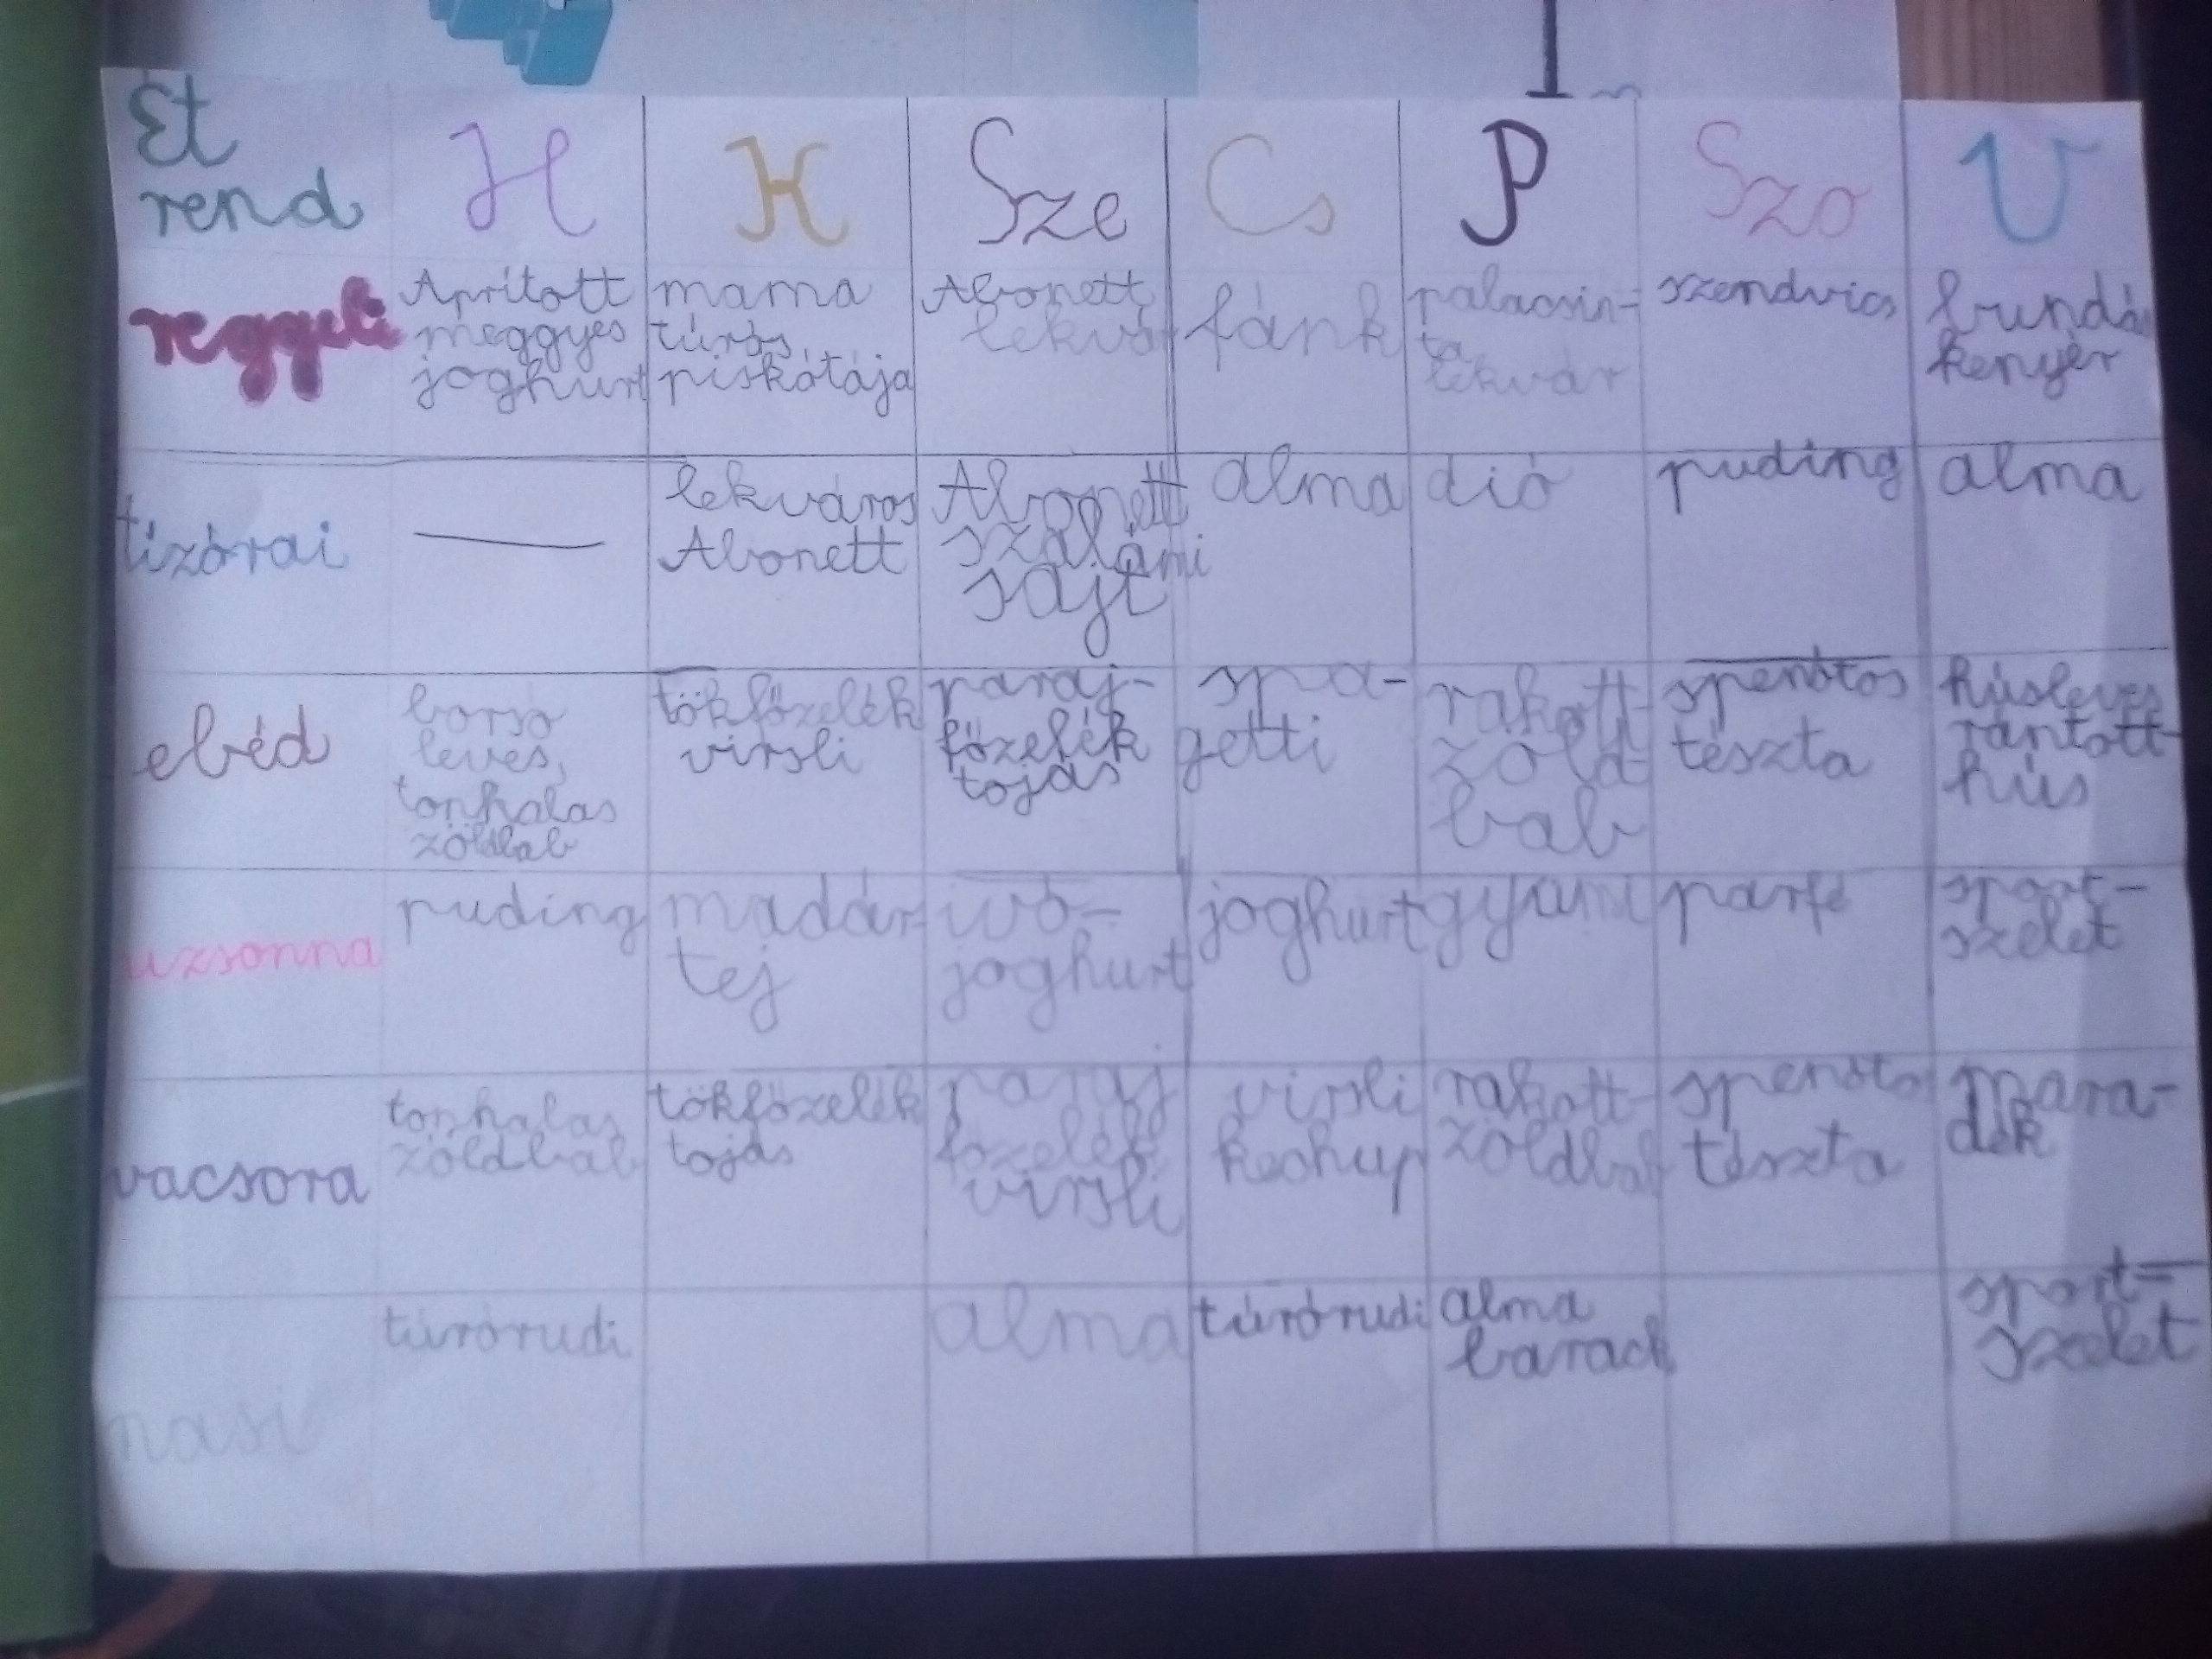 Ét
rend
H
K
Sze
Cs
P
Szo
V
reggeli
Aprított
meggyes
joghurt
mama
túrós
piskótája
Abonett
lekvár
fánk
palacsin=
ta
lekvár
szendvics
bundás
kenyér
tízórai
—
lekváros
Abonett
Abonett
szalámi
sajt
alma
dió
puding
alma
ebéd
borsó
leves,
tonhalas
zöldbab
tökfőzelék
virsli
paraj-
főzelék
tojás
spa-
getti
rakott-
zöld-
bab
spenótos
tészta
húsleves
rántott-
hús
uzsonna
puding
madár
tej
ivó-
joghurt
joghurt
gyümi
parfé
sport-
szelet
vacsora
tonhalas
zöldbab
tökfőzelék
tojás
paraj
főzelék
virsli
virsli
kechup
rakott-
zöldbab
spenótos
tészta
mara-
dék
nasi
túrórudi
alma
túrórudi
alma
barack
sport=
szelet